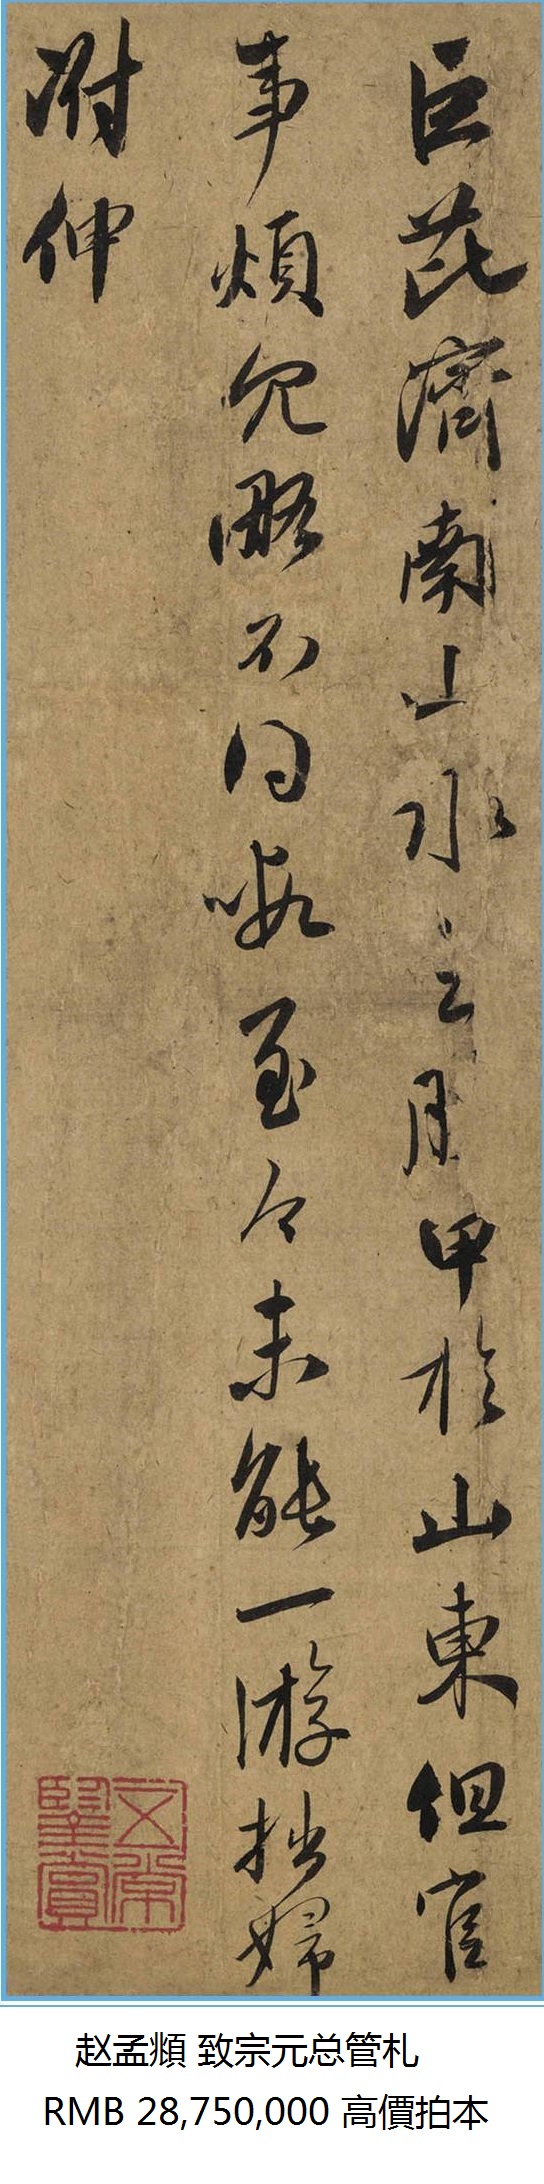 巨芘濟南山水之勝甲於山東但官
事煩冗略不得暇至今未能一游拙婦
附伸
鑒賞
赵孟頫 致宗元总管札
RMB 28,750,000 高價拍本